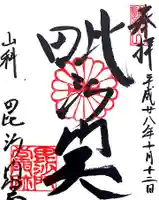 奉拝
平成廿八年十月十二日
毘沙門天
山科
毘沙門堂